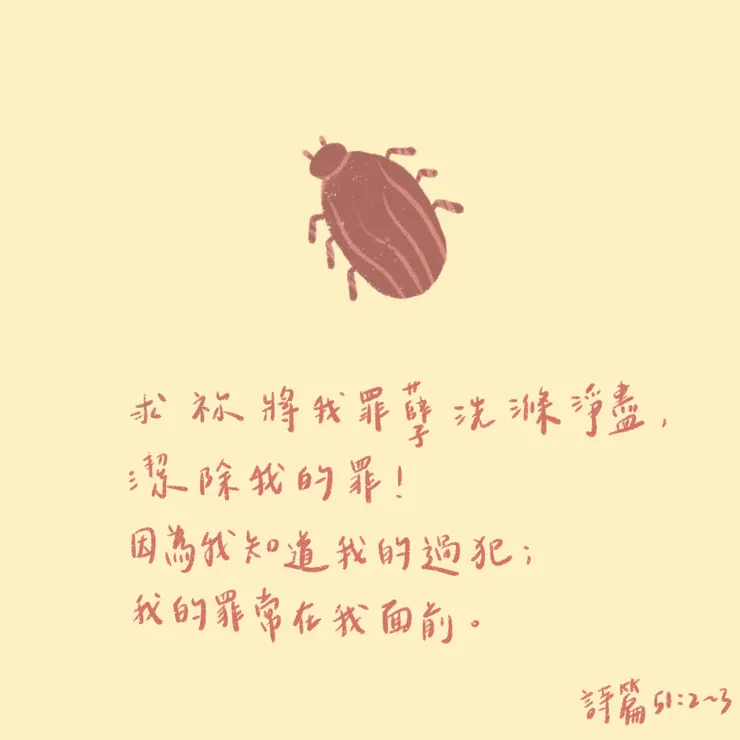 求祢將我罪孽洗滌淨盡，
潔除我的罪！
因為我知道我的過犯；
我的罪常在我面前。
詩篇51:2~3